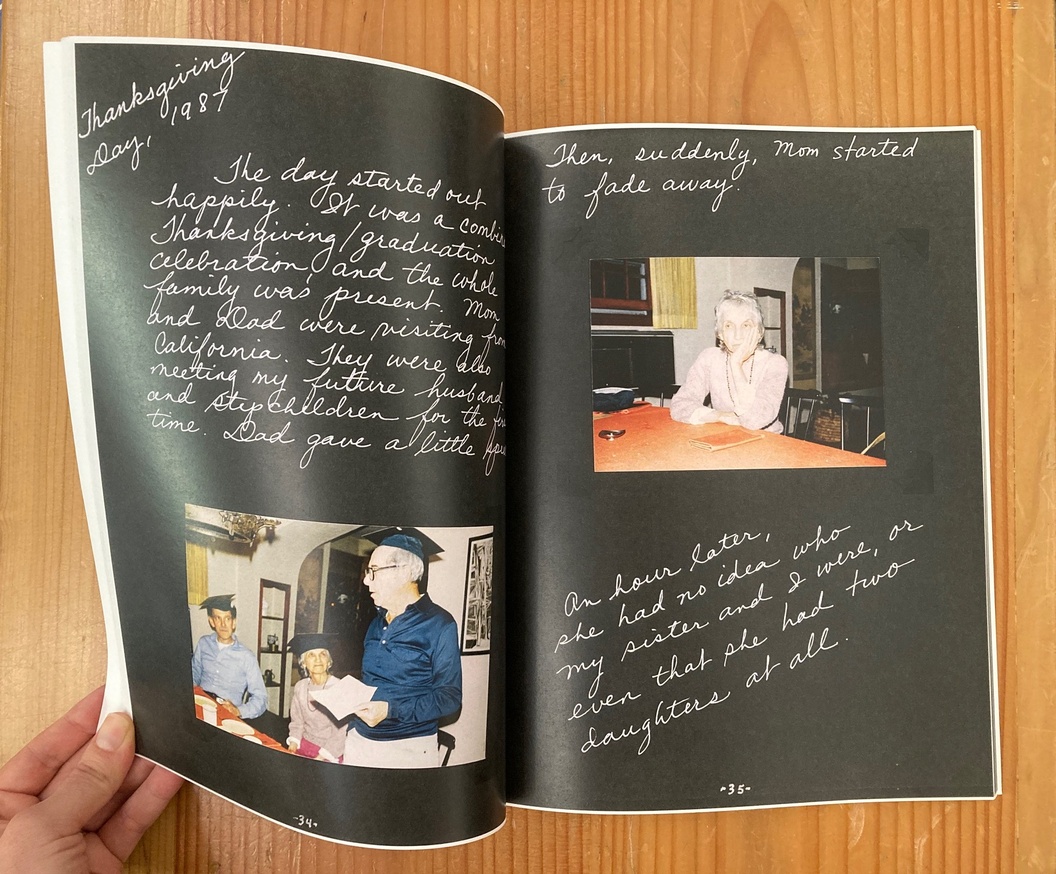 Thanksgiving
Day, 1987
The day started out
happily. It was a
Thanksgiving/graduation
celebration, and the whole
family was present. Mom
and Dad were visiting
California. They were also
meeting my future husband
and stepchildren for the
time. Dad gave a little
-34-
Then, suddenly, Mom started
to fade away.
An hour later,
she had no idea who
my sister and I were, or
even that she had two
daughters at all.
-35-